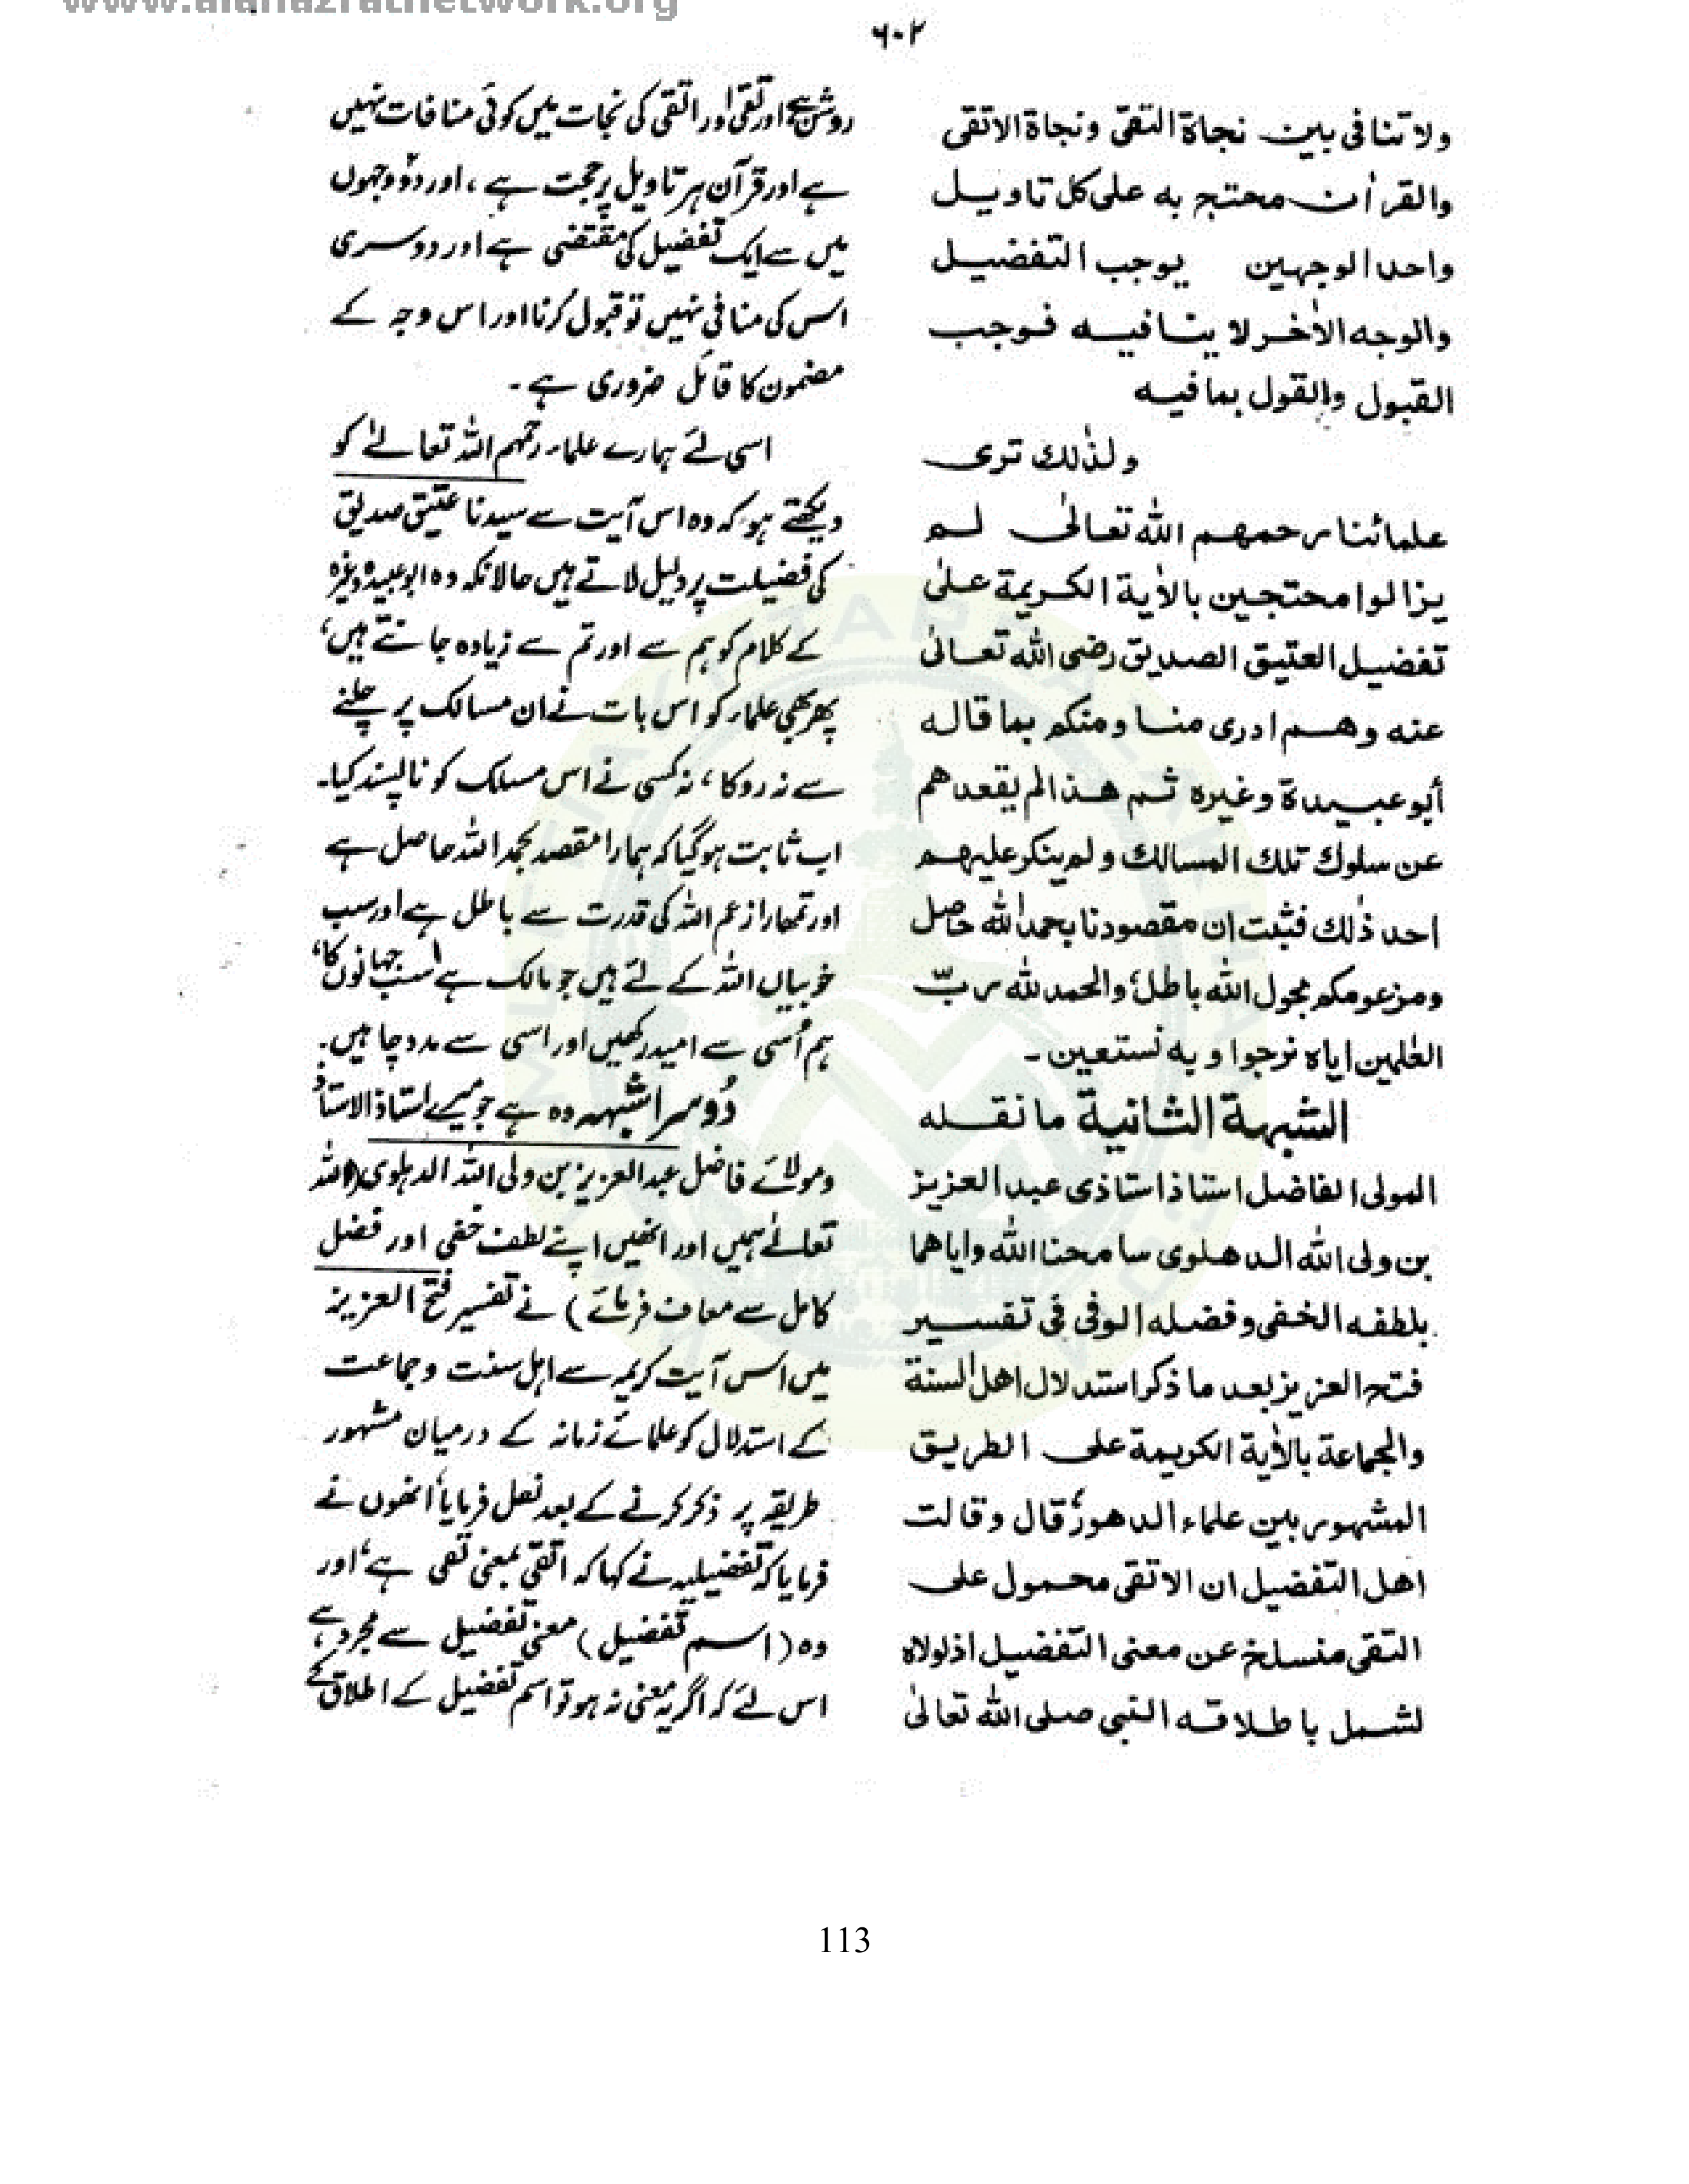 www.alahazratnetwork.org
٦٠٢
ولا تنافی بین نجاة التقی ونجاة الاتقی
والقراٰن محتج به علی کل تاویل
واحد الوجهین یوجب التفضیل
والوجه الاٰخر لا ینافیه فوجب
القبول والقول بما فیه
ولذٰلك تری
علمائنا رحمهم الله تعالیٰ لم
یزالوا محتجین بالاٰیة الکریمة علیٰ
تفضیل العتیق الصدیق رضی الله تعالیٰ
عنه وهم ادری منا ومنکم بما قاله
أبو عبیدة وغیره ثم هذا لم یقعدهم
عن سلوك تلك المسالك ولم ینکر علیهم
احد ذٰلك فثبت ان مقصودنا بحمد الله حاصل
ومزعومکم بحول الله باطل، والحمد لله ربّ
العٰلمین ایاه نرجوا وبه نستعین۔
الشبهة الثانیة ما نقله
المولی الفاضل استاذ استاذی عبد العزیز
بن ولی الله الدهلوی سامحنا الله وایاهما
بلطفه الخفی وفضله الوفی فی تفسیر
فتح العزیز بعد ما ذکر استدلال اهل السنة
والجماعة بالاٰیة الکریمة علی الطریق
المشهور بین علماء الدهور، قال وقالت
اهل التفضیل ان الاتقی محمول علی
التقی منسلخ عن معنی التفضیل اذ لولاه
لشمل باطلاقه النبی صلی الله تعالیٰ
روشن ہے اور تقی اور اتقی کی نجات میں کوئی منافات نہیں
ہے اور قرآن ہر تاویل پر حجت ہے، اور دو وجہوں
میں سے ایک تفضیل کی مقتضی ہے اور دوسری
اس کی منافی نہیں تو قبول کرنا اور اس وجہ کے
مضمون کا قائل ضروری ہے۔
اسی لئے ہمارے علماء رحمہم اللہ تعالےٰ کو
دیکھتے ہو کہ وہ اس آیت سے سیدنا عتیق صدیق
کی فضیلت پر دلیل لاتے ہیں حالانکہ وہ ابوعبیدہ وغیرہ
کے کلام کو ہم سے اور تم سے زیادہ جانتے ہیں،
پھر بھی علماء کو اس بات نے ان مسالک پر چلنے
سے نہ روکا، نہ کسی نے اس مسلک کو ناپسند کیا۔
اب ثابت ہو گیا کہ ہمارا مقصد بحمد اللہ حاصل ہے
اور تمھارا زعم اللہ کی قدرت سے باطل ہے اور سب
خوبیاں اللہ کے لئے ہیں جو مالک ہے سب جہانوں کا،
ہم اُسی سے امید رکھیں اور اسی سے مدد چاہیں۔
دُوسرا شبہہ وہ ہے جو میرے استاذ الاستاذ
و مولائے فاضل عبدالعزیز بن ولی اللہ الدہلوی (اللہ
تعالےٰ ہمیں اور انھیں اپنے لطف خفی اور فضل
کامل سے معاف فرمائے) نے تفسیر فتح العزیز
میں اس آیت کریمہ سے اہل سنت و جماعت
کے استدلال کو علمائے زمانہ کے درمیان مشہور
طریقہ پر ذکر کرنے کے بعد نقل فرمایا، انھوں نے
فرمایا کہ تفضیلیہ نے کہا کہ اتقی بمعنی تقی ہے، اور
وہ (اسم تفضیل) معنی تفضیل سے مجرد ہے،
اس لئے کہ اگر یہ معنی نہ ہو تو اسم تفضیل کے اطلاق کے
113